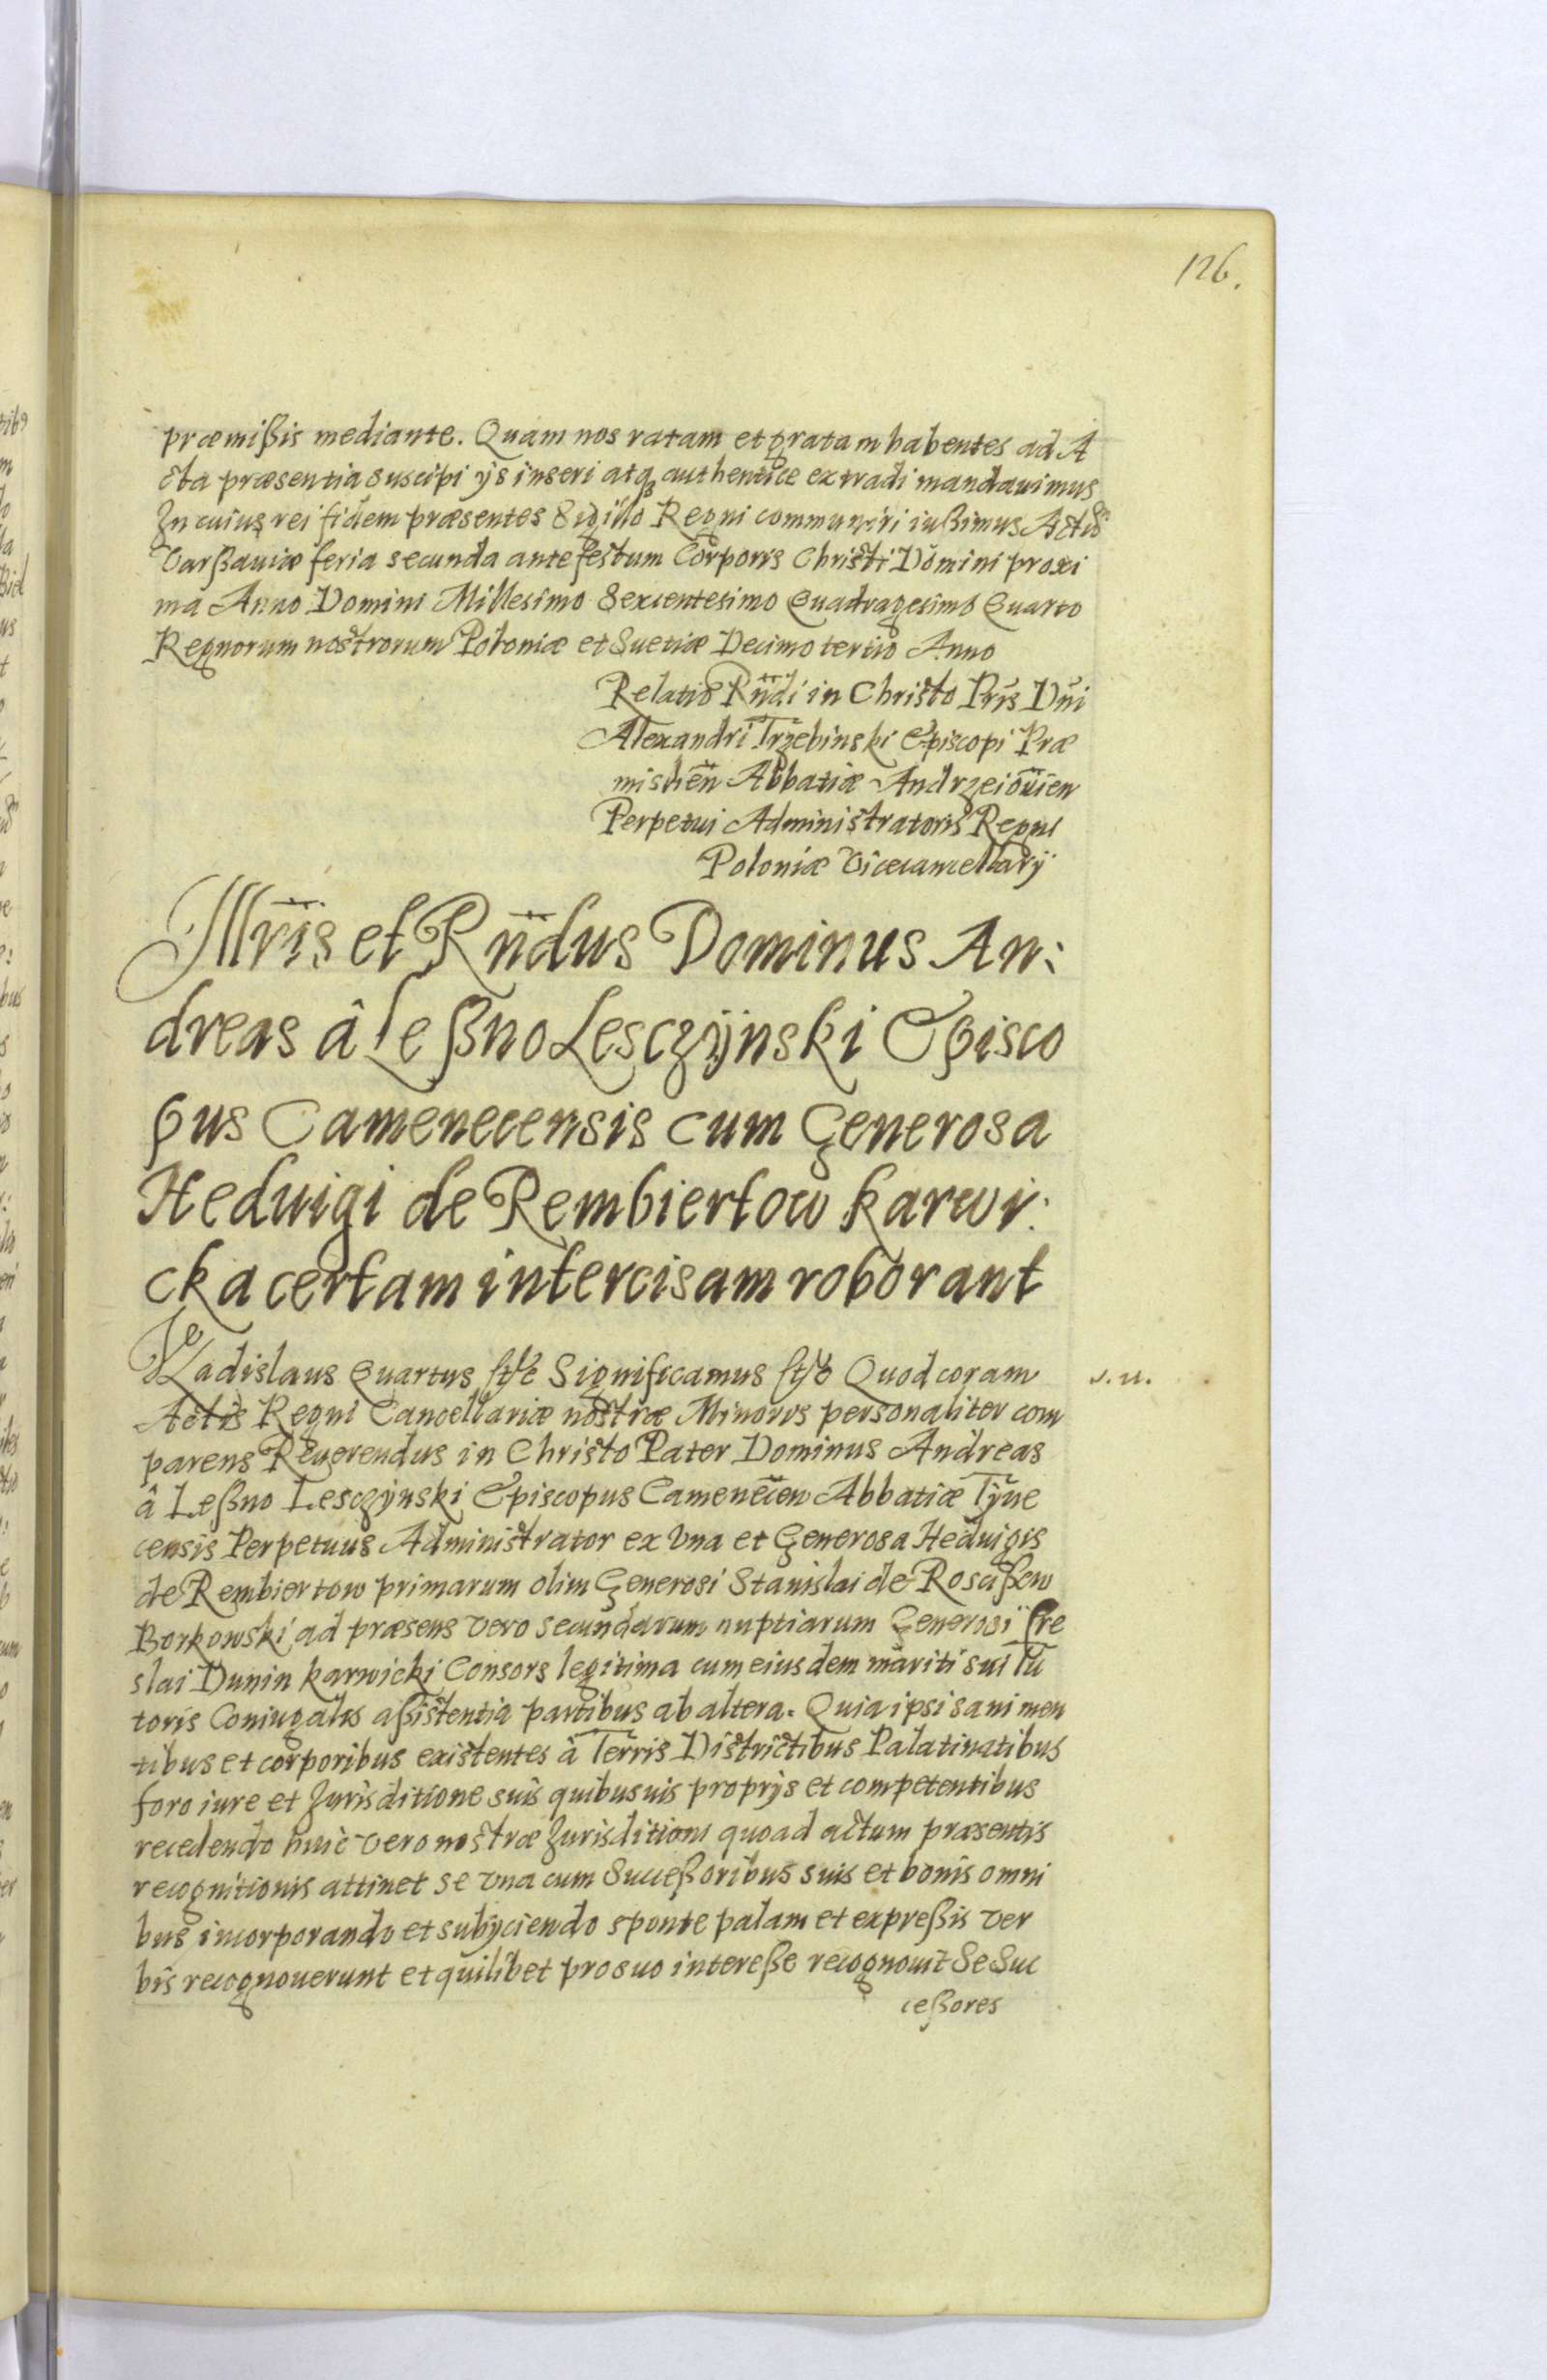 126.
præmißis mediante. Quam nos ratam et gratam habentes ad A
cta præsentia suscipi ijs inseri atq₃ authentice extradi mandauimus
In cuius rei fidem præsentes Sigillo Regni communiri iußimus Actũ
Varßauiæ feria secunda ante festum Corporis Christi Domini proxi
ma Anno Domini Millesimo Sexcentesimo Quadragesimo Quarto
Regnorum nostrorum Poloniæ et Suetiæ Decimo tertio Anno
Relatio Rñdi in Christo Pr̃is Dñi
Alexandri Trzebinski Episcopi Præ
mislien̄ Abbatiæ Andrzeiouien
Perpetui Administratoris Regni
Poloniæ Vicecancellarij
Illrĩs et Rñdus Dominus An:
dreas â Leßno Lesczÿnski Episco
pus Camenecensis cum Generosa
Heduigi de Rembiertow Karwi:
cka certam intercisam roborant
Vladislaus Quartus etc Significamus etc Quod coram
s. u.
Actis Regni Cancellariæ nostræ Minoris personaliter com
parens Reuerendus in Christo Pater Dominus Andreas
â Leßno Lesczÿnski Episcopus Camenecen Abbatiæ Tyne
censis Perpetuus Administrator ex Vna et Generosa Heduigis
de Rembiertow primarum olim Generosi Stanislai de Roscißew
Borkowski ad præsens vero secundarum nuptiarum Generosi Cre
slai Dunin Karwicki Consors legitima cum eiusdem mariti sui Tu
toris Coniugalis aßistentia partibus ab altera. Quia ipsi sani men
tibus et corporibus existentes à Terris Districtibus Palatinatibus
foro iure et Jurisditione suis quibusuis proprijs et competentibus
recedendo huic vero nostræ Jurisditioni quoad actum præsentis
recognitionis attinet se vna cum Succeßoribus suis et bonis omni
bus incorporando et subijciendo sponte palam et expreßis ver
bis recognouerunt et quilibet pro suo intereße recognouit Se Suc
ceßores